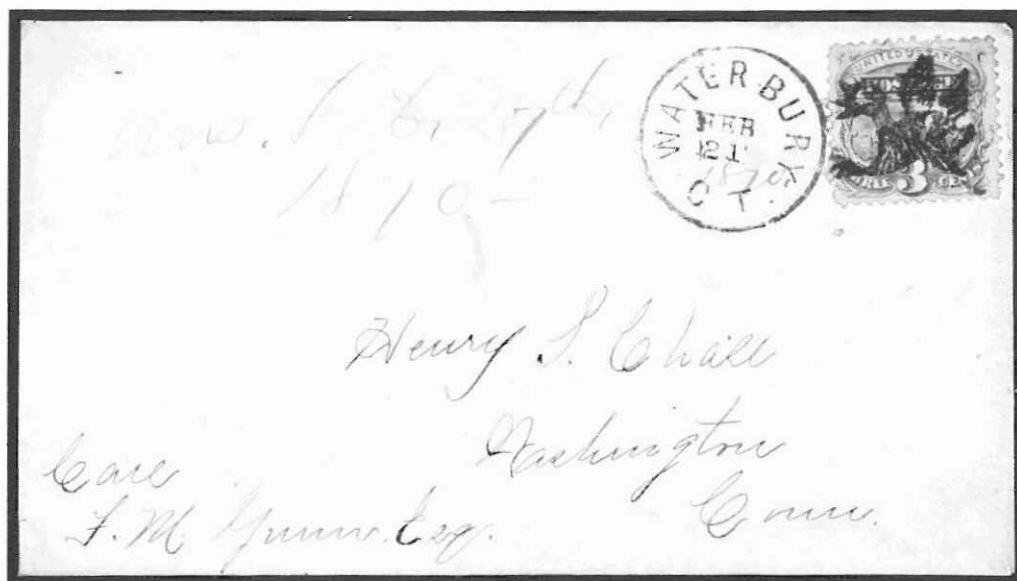 Mrs.
1870 -
WATERBURY
FEB
21
1870
CT.
UNITED STATES
POSTAGE
THREE 3 CENTS
Henry S. Chase
Washington
Conn.
Care
F. M. Gunn. Esq.